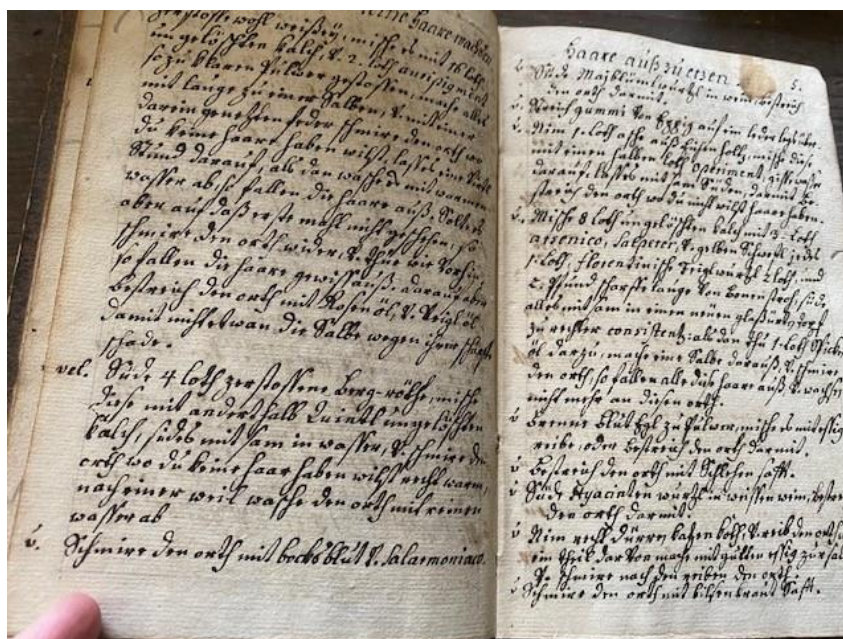 seine Haare machen
zerstosse wohl weißen, misch es mit 16 loth
ungelöschten kalch, v. 2. loth auripigment
so zu klaren Pulver gestossen, mach alles
mit lauge zu einer Salben, v. mit einer
darein genetzten feder schmire den orth wo
du keine haare haben wilst, lasses eine Viertl
Stund darauf, als dan wasche es mit warmen
wasser ab, so fallen die haare auß. Solte es
aber auf daß erste mahl nicht geschehen, so
schmire den orth wider, v. thue wie vorhin,
so fallen die haare gewiß auß. darauf aber
bestreich den orth mit Rosenöl, v. Veigl öl
damit nicht etwan die Salbe wegen ihrer schärffe
schade.
vel. Süde 4 loth zerstossene Berg-röthe, misch
diese mit anderthalb Quintl ungelöschten
kalch, südes mit sam in wasser, v. schmire den
orth wo du keine haar haben wilst recht warm,
nach einer weil wasche den orth mit reinen
wasser ab
v. Schmire den orth mit bocksblut v. Salarmoniaco.
Haare auß zu etzen
5.
v. Süde Majbluml wurtzl in wein, bestreich
den orth darmit.
v. Streich gummi von auf ein leder legs über.
v. Nim 1. loth asche auß holtz, mische diese
mit einen halben loth Operiment, giess wasser
darauf, lasses mit sam Süden, darmit be-
streich den orth wo du nicht wilst haare haben.
v. Mische 8 loth ungelöschten kalch mit 3. loth
arsenico, Salpeter, v. gelben Schwefl jedes
1. loth, florentinische Veiglwurtzl 2 loth, und
2. Pfund scharffe lauge von bonenstroh, süde
alles mit sam in einen neuen glasürten topf
zu rechter consistentz: als dan thu 1. loth Spicken
öl darzu, mach eine Salbe darauß, v. schmire
den orth, so fallen alle dise haare auß, v. wachsen
nicht mehr an diesen orth.
v. brenne blut Egl zu Pulver, misch es mit essig
reibe, oder bestreich den orth darmit.
v. bestreich den orth mit Schlehen safft.
v. Süde Hyacinten wurtzl in weissen wein, bestreich
den orth darmit.
v. Nim recht dürren katzen koth, v. reib den orth,
ein theil dar von mach mit gutten essig zur sal
v. schmire nach den reiben den orth.
v. Schmire den orth mit bilsenkraut Safft.